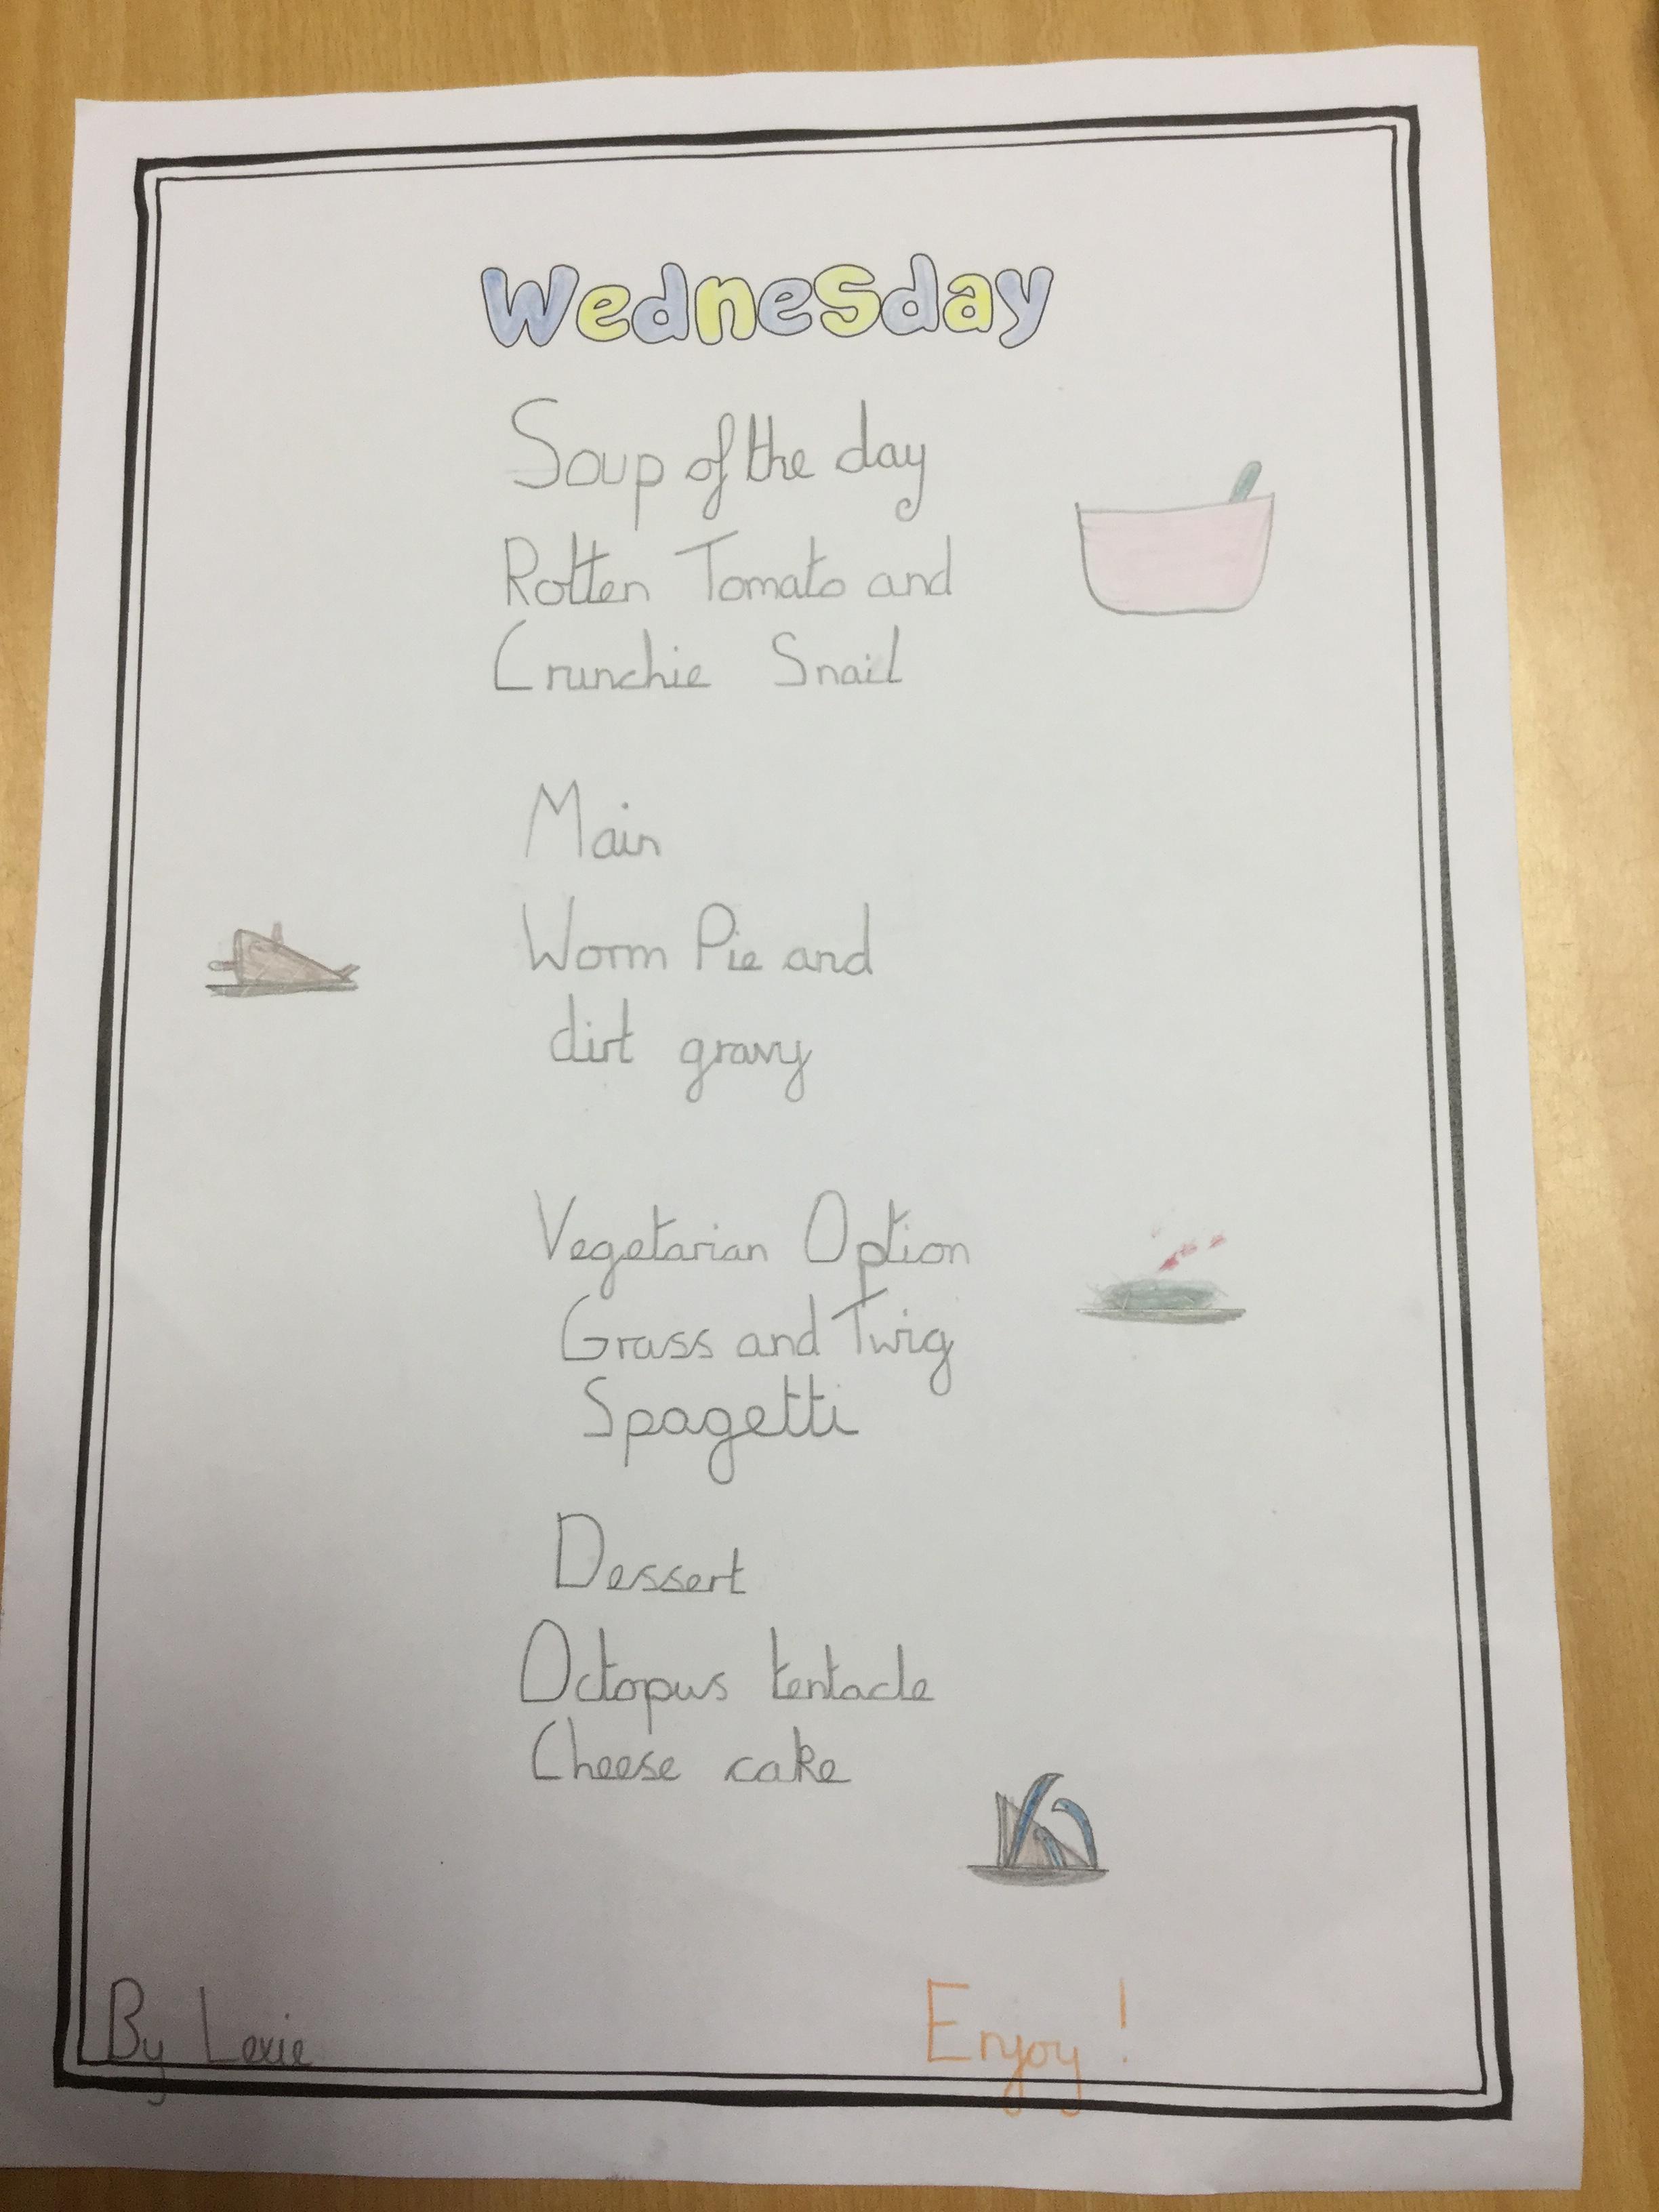 Wednesday
Soup of the day
Rotten Tomato and
Crunchie Snail
Main
Worm Pie and
dirt gravy
Vegetarian Option
Grass and Twig
Spagetti
Dessert
Octopus tentacle
Cheese cake
By Lexie
Enjoy!